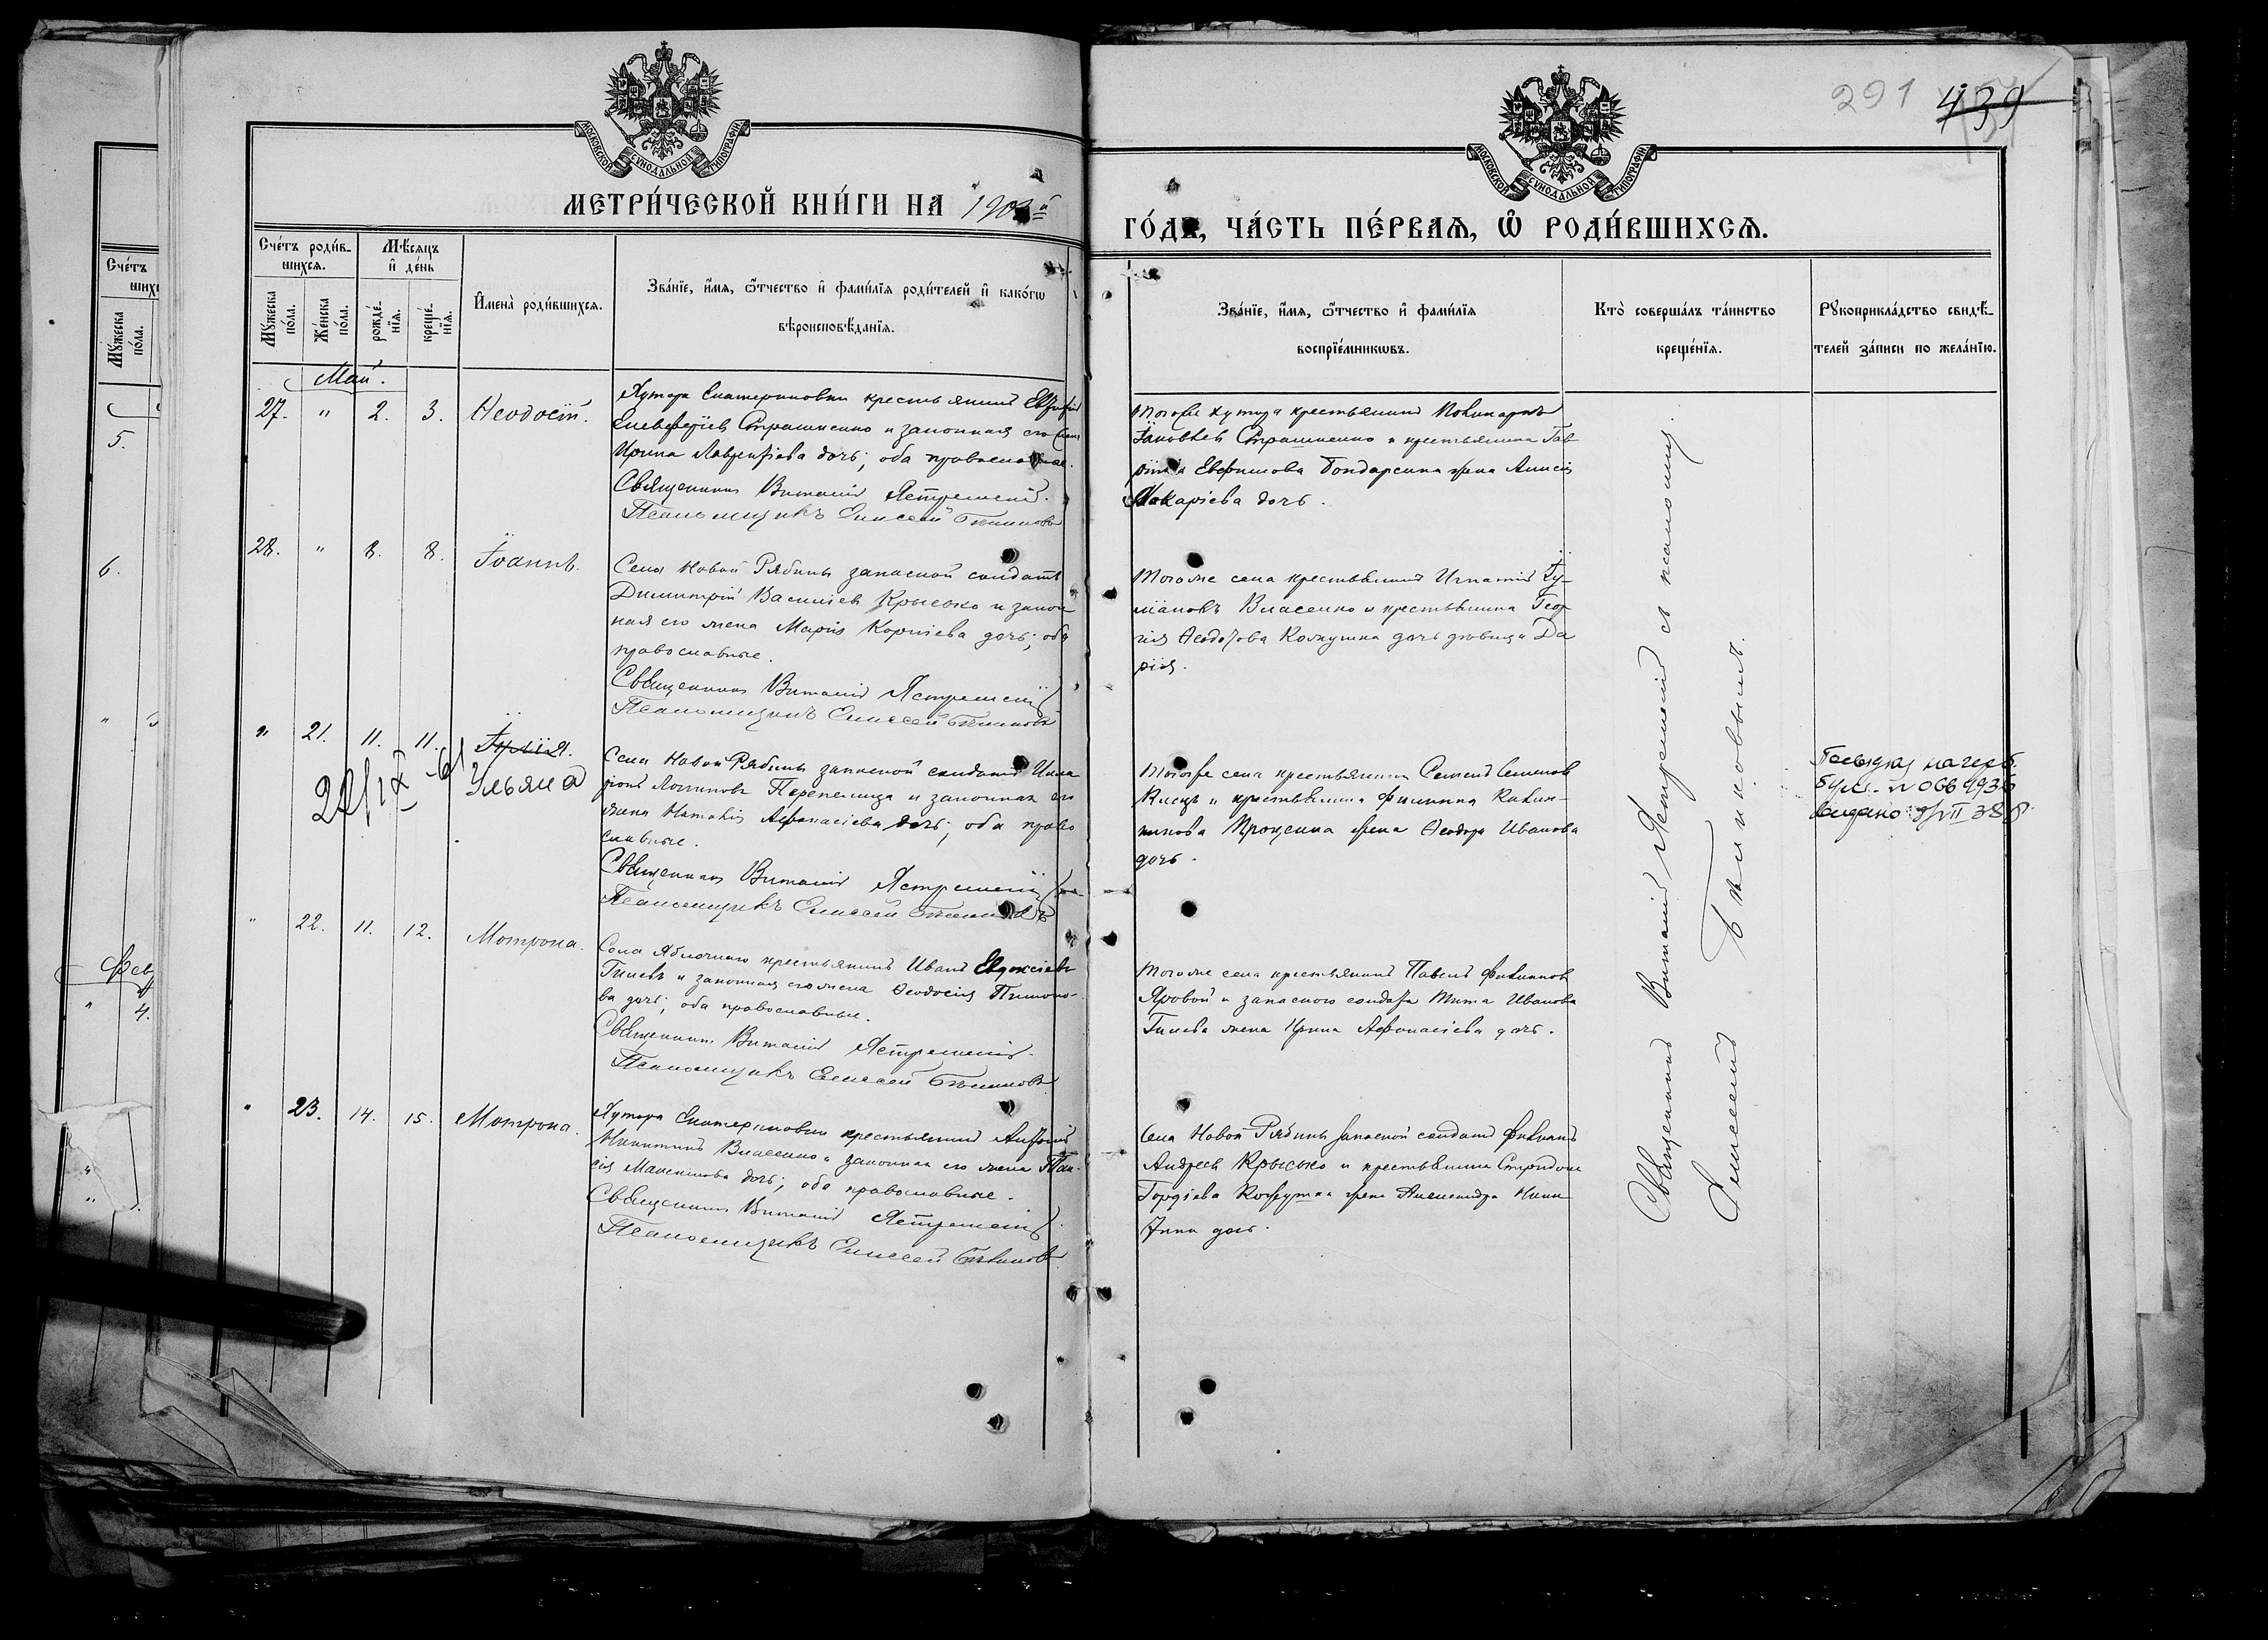 291 439
МОСКОВСКОЙ СѴНОДАЛЬНОЙ ТИПОГРАФІИ
МОСКОВСКОЙ СѴНОДАЛЬНОЙ ТИПОГРАФІИ
МЕТРИ́ЧЕСКОЙ КНИ́ГИ НА 190
ГО́ДЪ, ЧА́СТЬ ПЕ́РВАѦ, Ѽ РОДИ́ВШИХСѦ.
Сче́тъ роди́в-
шихсѧ.
Мꙋ́жеска по́ла.
Же́нска по́ла.
Мѣ́сѧцъ и҆ де́нь
рожде́-нїѧ.
креще́-нїѧ.
И҆мена̀ роди́вшихсѧ.
Зва́нїе, и҆́мѧ, ѻ҆́тчество и҆ фами́лїѧ роди́телей и҆ како́гѡ
вѣроисповѣ́данїѧ.
Зва́нїе, и҆́мѧ, ѻ҆́тчество и҆ фами́лїѧ
воспрїе́мникѡвъ.
Кто̀ соверша́лъ та́инство
креще́нїѧ.
Рꙋкоприкла́дство свидѣ́-
телей за́писи по жела́нїю.
Май.
27. " 2. 3. Ѳеодосій.
Хутора Екатериновки крестьянинъ
Елевферіевъ Страшненко и законная его жена
Ирина Лаврентіева дочь; оба православные.
Священникъ Виталій Ястремскій.
Псаломщикъ Елисей Билиновъ
Тогоже хутора крестьянинъ Поликарпъ
Іаковлевъ Страшненко и крестьянина Гав-
ріила Евфимова Бондаренка жена Анисія
Макаріева дочь.
28. " 8. 8. Іоаннъ.
Села Новой Рябины запасной солдатъ
Димитрій Васильевъ Крысько и закон-
ная его жена Марія Корніева дочь; оба
православные.
Священникъ Виталій Ястремскій
Псаломщикъ Елисей Билиновъ
Тогоже села крестьянинъ Игнатій Іу-
ліановъ Власенко и крестьянина Геор-
гія Ѳеодотова дочь дѣвица Да-
рія.
" 21. 11. 11. Іулія.
Ульяна
22/IX -61
Села Новой Рябины запасной солдатъ Ила-
ріонъ Логиновъ Перепелица и законная его
жена Наталія Аѳанасіева дочь; оба право-
славные.
Священникъ Виталій Ястремскій
Псаломщикъ Елисей Билиновъ
Тогоже села крестьянинъ Семенъ Семеновъ
и крестьянина Филиппа
Проценка жена Ѳеодора Иванова
дочь.
на герб.
бум. N 066 993
видано
" 22. 11. 12. Мотрона.
Села Яблочнаго крестьянинъ Иванъ Евдокіевъ
Гилевъ и законная его жена Ѳеодосія
ва дочь; оба православные.
Священникъ Виталій Ястремскій.
Псаломщикъ Елисей Билиновъ
Тогоже села крестьянинъ Павелъ Филипповъ
Яровой и запасного солдата Тита Иванова
Гилева жена Ирина Аѳанасіева дочь.
" 23. 14. 15. Мотрона.
Хутора Екатериновки крестьянинъ Антоній
Никитинъ Власенко и законная его жена
Максимова дочь; оба православные.
Священникъ Виталій Ястремскій
Псаломщикъ Елисей Билиновъ
Села Новой Рябины запасной солдатъ Филиппъ
Андреевъ Крысько и крестьянина Спиридона
Гордіева жена Александра Ники-
тина дочь.
Священникъ Виталій Ястремскій съ псаломщ.
Елисеемъ Билиновымъ.
Сче́тъ
Мꙋ́жеска по́ла.
5.
6.
Фев
4.